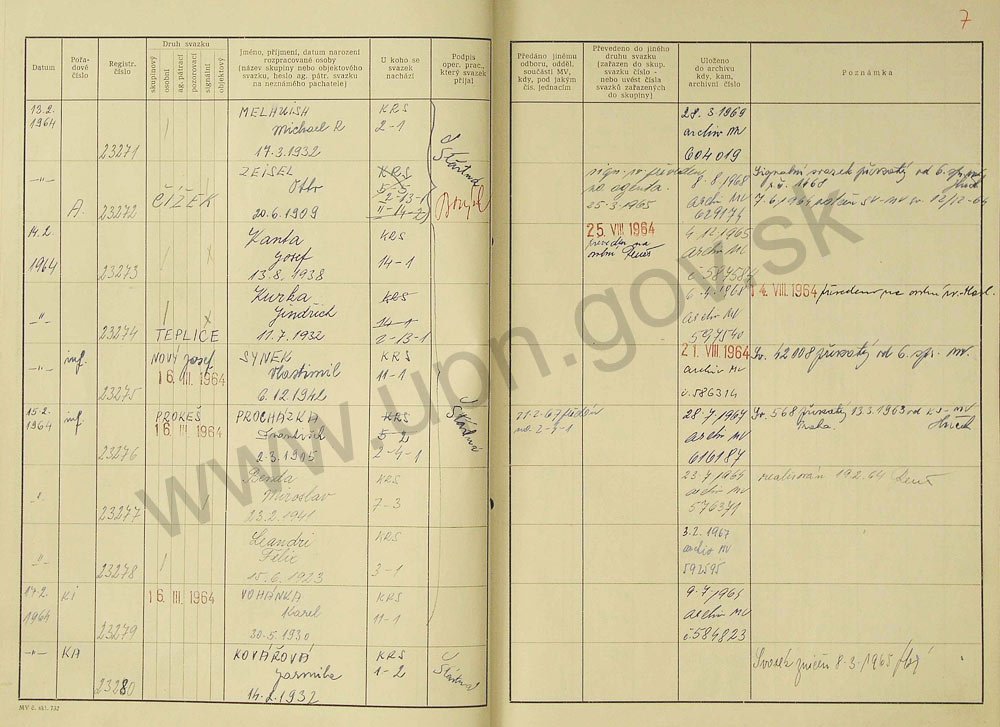 7
Datum
Pořadové číslo
Registr. číslo
Druh svazku
skupinový
osobní
ag. pátrací
pozorovací
signální
objektový
Jméno, příjmení, datum narození
rozpracované osoby
(název skupiny nebo objektového
svazku, heslo ag. pátr. svazku
na neznámého pachatele)
U koho se
svazek
nachází
Podpis
oper. prac.,
který svazek
přijal
Předáno jinému
odboru, odděl.
součásti MV,
kdy, pod jakým
čís. jednacím
Převedeno do jiného
druhu svazku
(zařazen do skup.
svazku číslo -
nebo uvést čísla
svazků zařazených
do skupiny)
Uloženo
do archivu
kdy, kam,
archivní číslo
Poznámka
13.2.
1964
23271
MELHUISH
Michael R
17.3.1932
KRS
2-1
Šťastná
28.3.1969
archiv MV
604019
-"-
A.
23272
ČÍŽEK
ZEISEL
Otto
20.6.1909
KRS
5-5
2-13-1
II-4-2
25-3-1965
8.8.1968
archiv MV
629174
14.2.
1964
23273
Kanta
Josef
13.8.1938
KRS
14-1
25. VIII 1964
4.12.1965
archiv MV
č.587584
-"-
23274
TEPLICE
Kurka
Jindřich
11.7.1932
KRS
14-1
2-13-1
6.4.1968
archiv MV
597540
14. VIII. 1964
-"-
inf.
23275
NOVÝ Josef
16. III. 1964
SYNEK
Vlastimil
6.12.1942
KRS
11-1
21. VIII 1964
archiv MV
č.586314
Sv. 42008 převzatý od 6. odb. MV.
15-2.
1964
inf
23276
PROKEŠ
16. III. 1964
PROCHÁZKA
František
2-3.1905
KRS
5-2
2-4-1
Šťastná
28.7.1967
archiv MV
616187
Sv. 568 převzatý 13.3.1963 od KS-MV
Praha.
-"-
23277
Benda
Miroslav
23.2.1941
KRS
7-3
23.7.1965
archiv MV
576371
realisován 19.2.64
-"-
23278
Leandri
Felix
15.6.1923
KRS
3-1
3.2.1967
archiv MV
592595
17.2.
1964
KI
23279
16. III. 1964
VOHANKA
Karel
30.5.1930
KRS
11-1
9.7.1965
archiv MV
č.584823
-"-
KA
23280
KOVÁŘOVÁ
Jarmila
14.2.1932
KRS
1-2
Šťastná
Svazek zničen 8-3-1965
MV č. skl. 752
www.upn.gov.sk